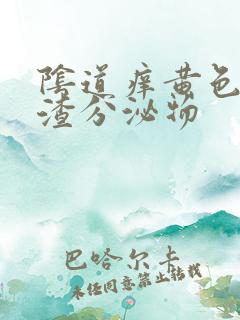 陰道痒黄色
渣分泌物
巴哈尔卡
未经同意禁止转载